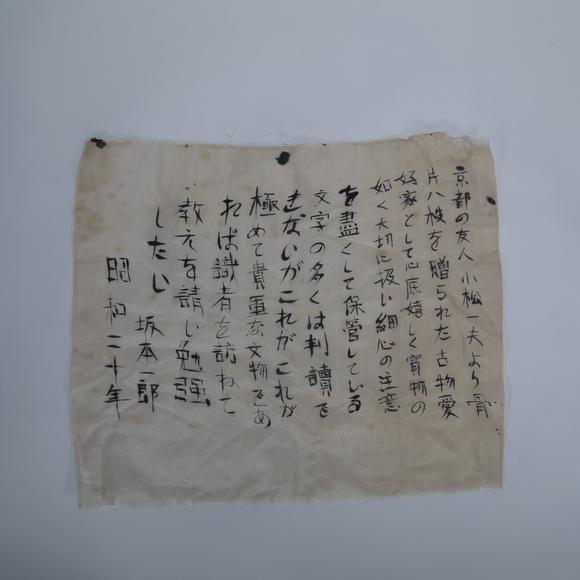 京都の友人 小松一夫より骨
片八枚を贈られた古物愛
好家として心底嬉しく宝物の
如く大切に扱い細心の注意
を盡くして保管している
文字の多くは判讀で
きないがこれがこれが
極めて貴重な文物であ
れば識者を訪ねて
教えを請い勉強
したい
坂本一郎
昭和二十年